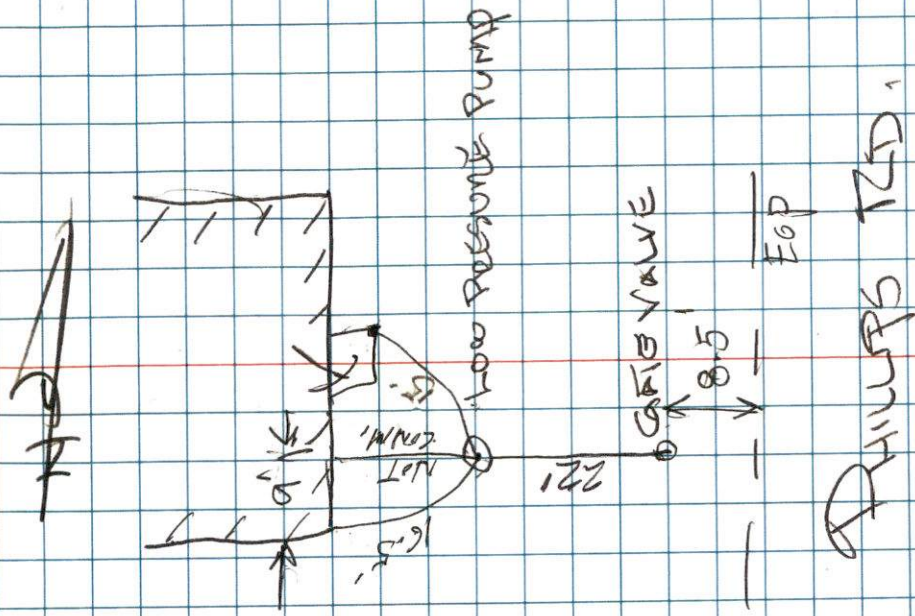 N
LOW PRESSURE PUMP
GATE VALVE
8.5'
EOP
PHILLIPS RD.
22'
NOT
CONN.
16.5'
9'